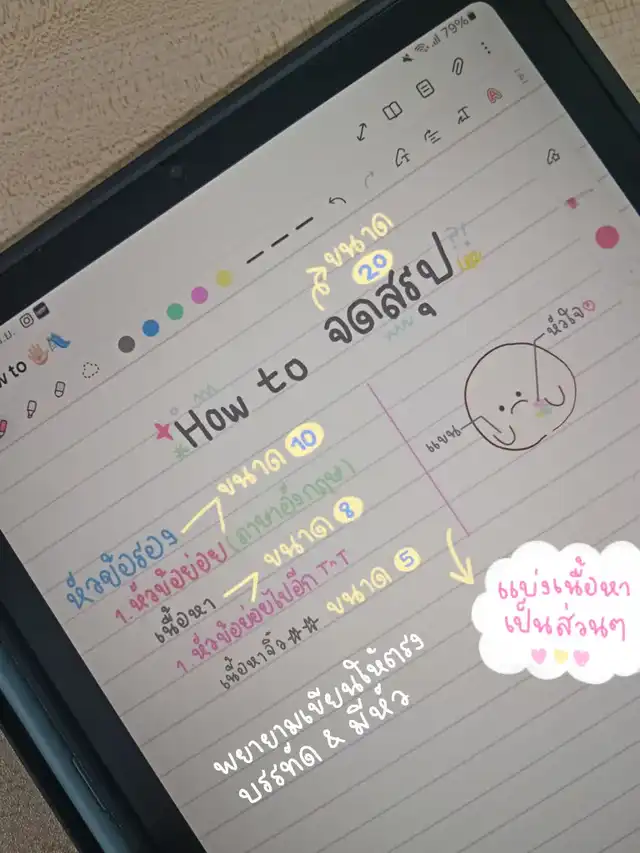 79%
ขนาด
20
How to จดสรุป?!
หัวใจ
แขน
ขนาด 10
หัวข้อรอง
1.หัวข้อย่อย (ภาษาอังกฤษ)
ขนาด 8
เนื้อหา
1.หัวข้อย่อยไปอีก T^T
ขนาด 5
เนื้อหาจิ๋ว##
แบ่งเนื้อหา
เป็นส่วนๆ
พยายามเขียนให้ตรง
บรรทัด & มีหัว